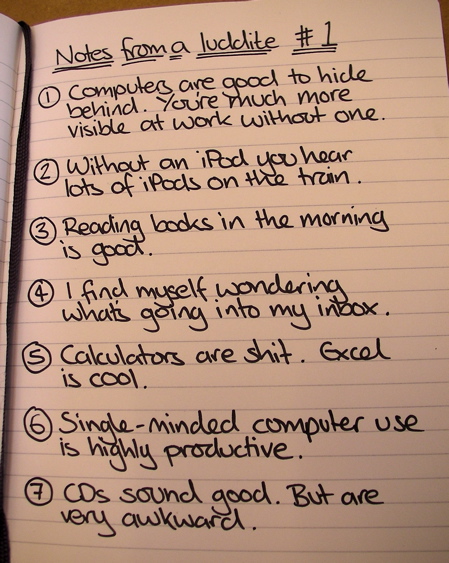 Notes from a luddite #1
① Computers are good to hide
behind. You're much more
visible at work without one.
② Without an iPod you hear
lots of iPods on the train.
③ Reading books in the morning
is good.
④ I find myself wondering
what's going into my inbox.
⑤ Calculators are shit. Excel
is cool.
⑥ Single-minded computer use
is highly productive.
⑦ CDs sound good. But are
very awkward.